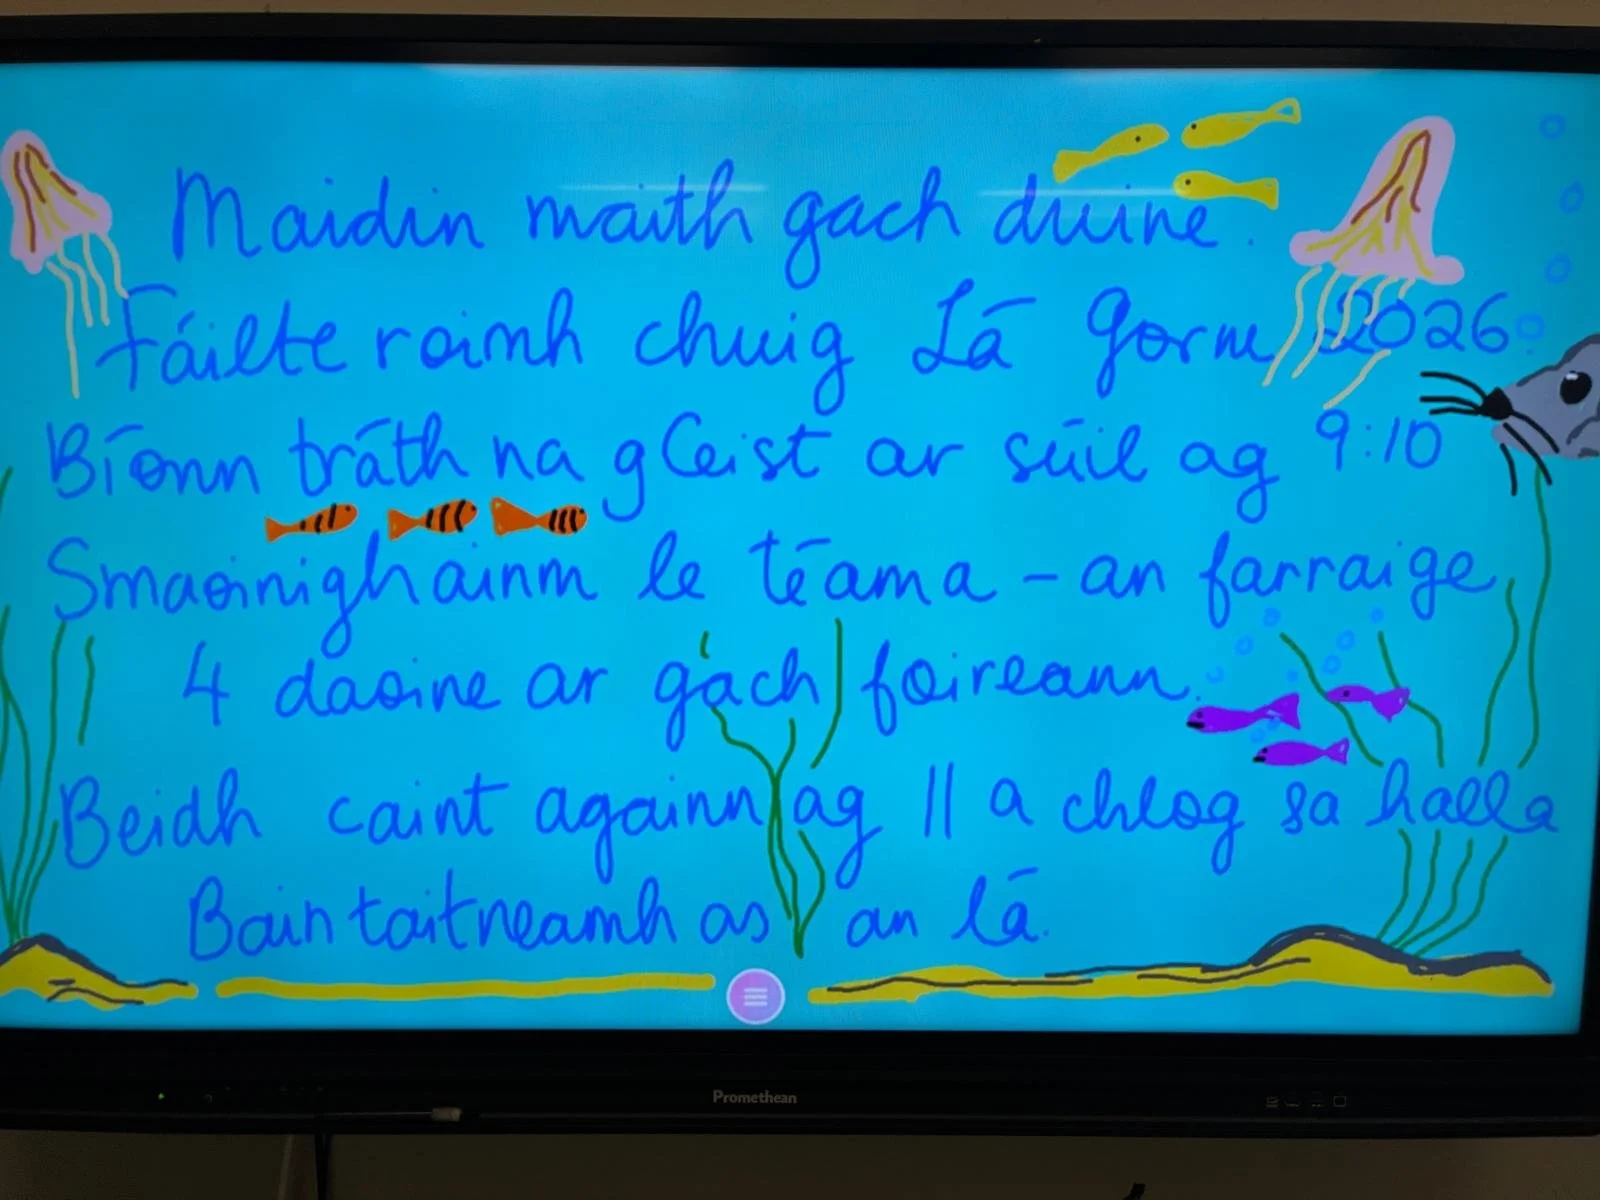 Maidin maith gach duine.
Fáilte roimh chuig Lá Gorm 2026.
Bíonn tráth na gCeist ar súil ag 9:10
Smaoinigh ainm le téama - an farraige
4 daoine ar gach foireann.
Beidh caint againn ag 11 a chlog sa halla
Bain taitneamh as an lá.
Promethean